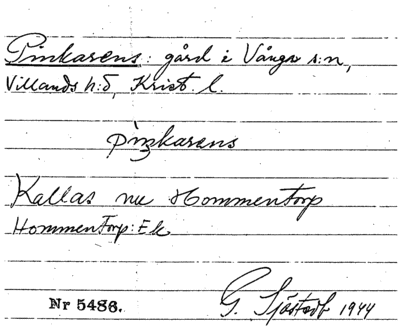 Pinkarens: gård i Vånga s:n,
Villands h:d, Krist. l.
pinkarens
Kallas nu Hommentorp
Hommentorp: Ek.
Nr 5486. G. Sjöstedt 1944